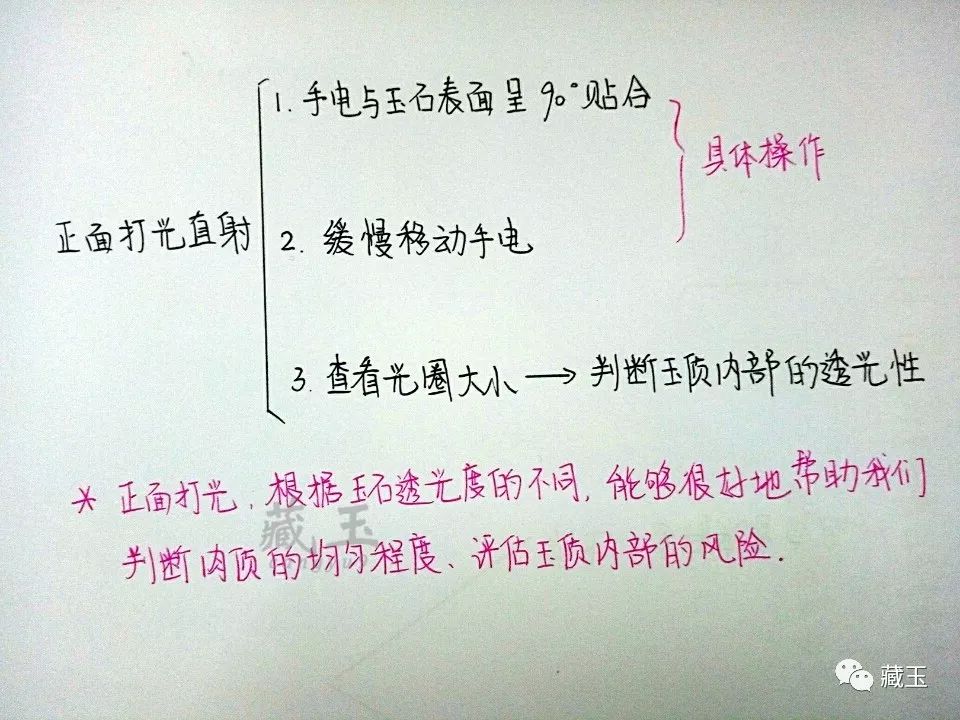 1. 手电与玉石表面呈 90°贴合
具体操作
正面打光直射
2. 缓慢移动手电
3. 查看光圈大小 → 判断玉质内部的透光性
* 正面打光,根据玉石透光度的不同,能够很好地帮助我们
判断内质的均匀程度、评估玉质内部的风险.
藏玉
藏玉